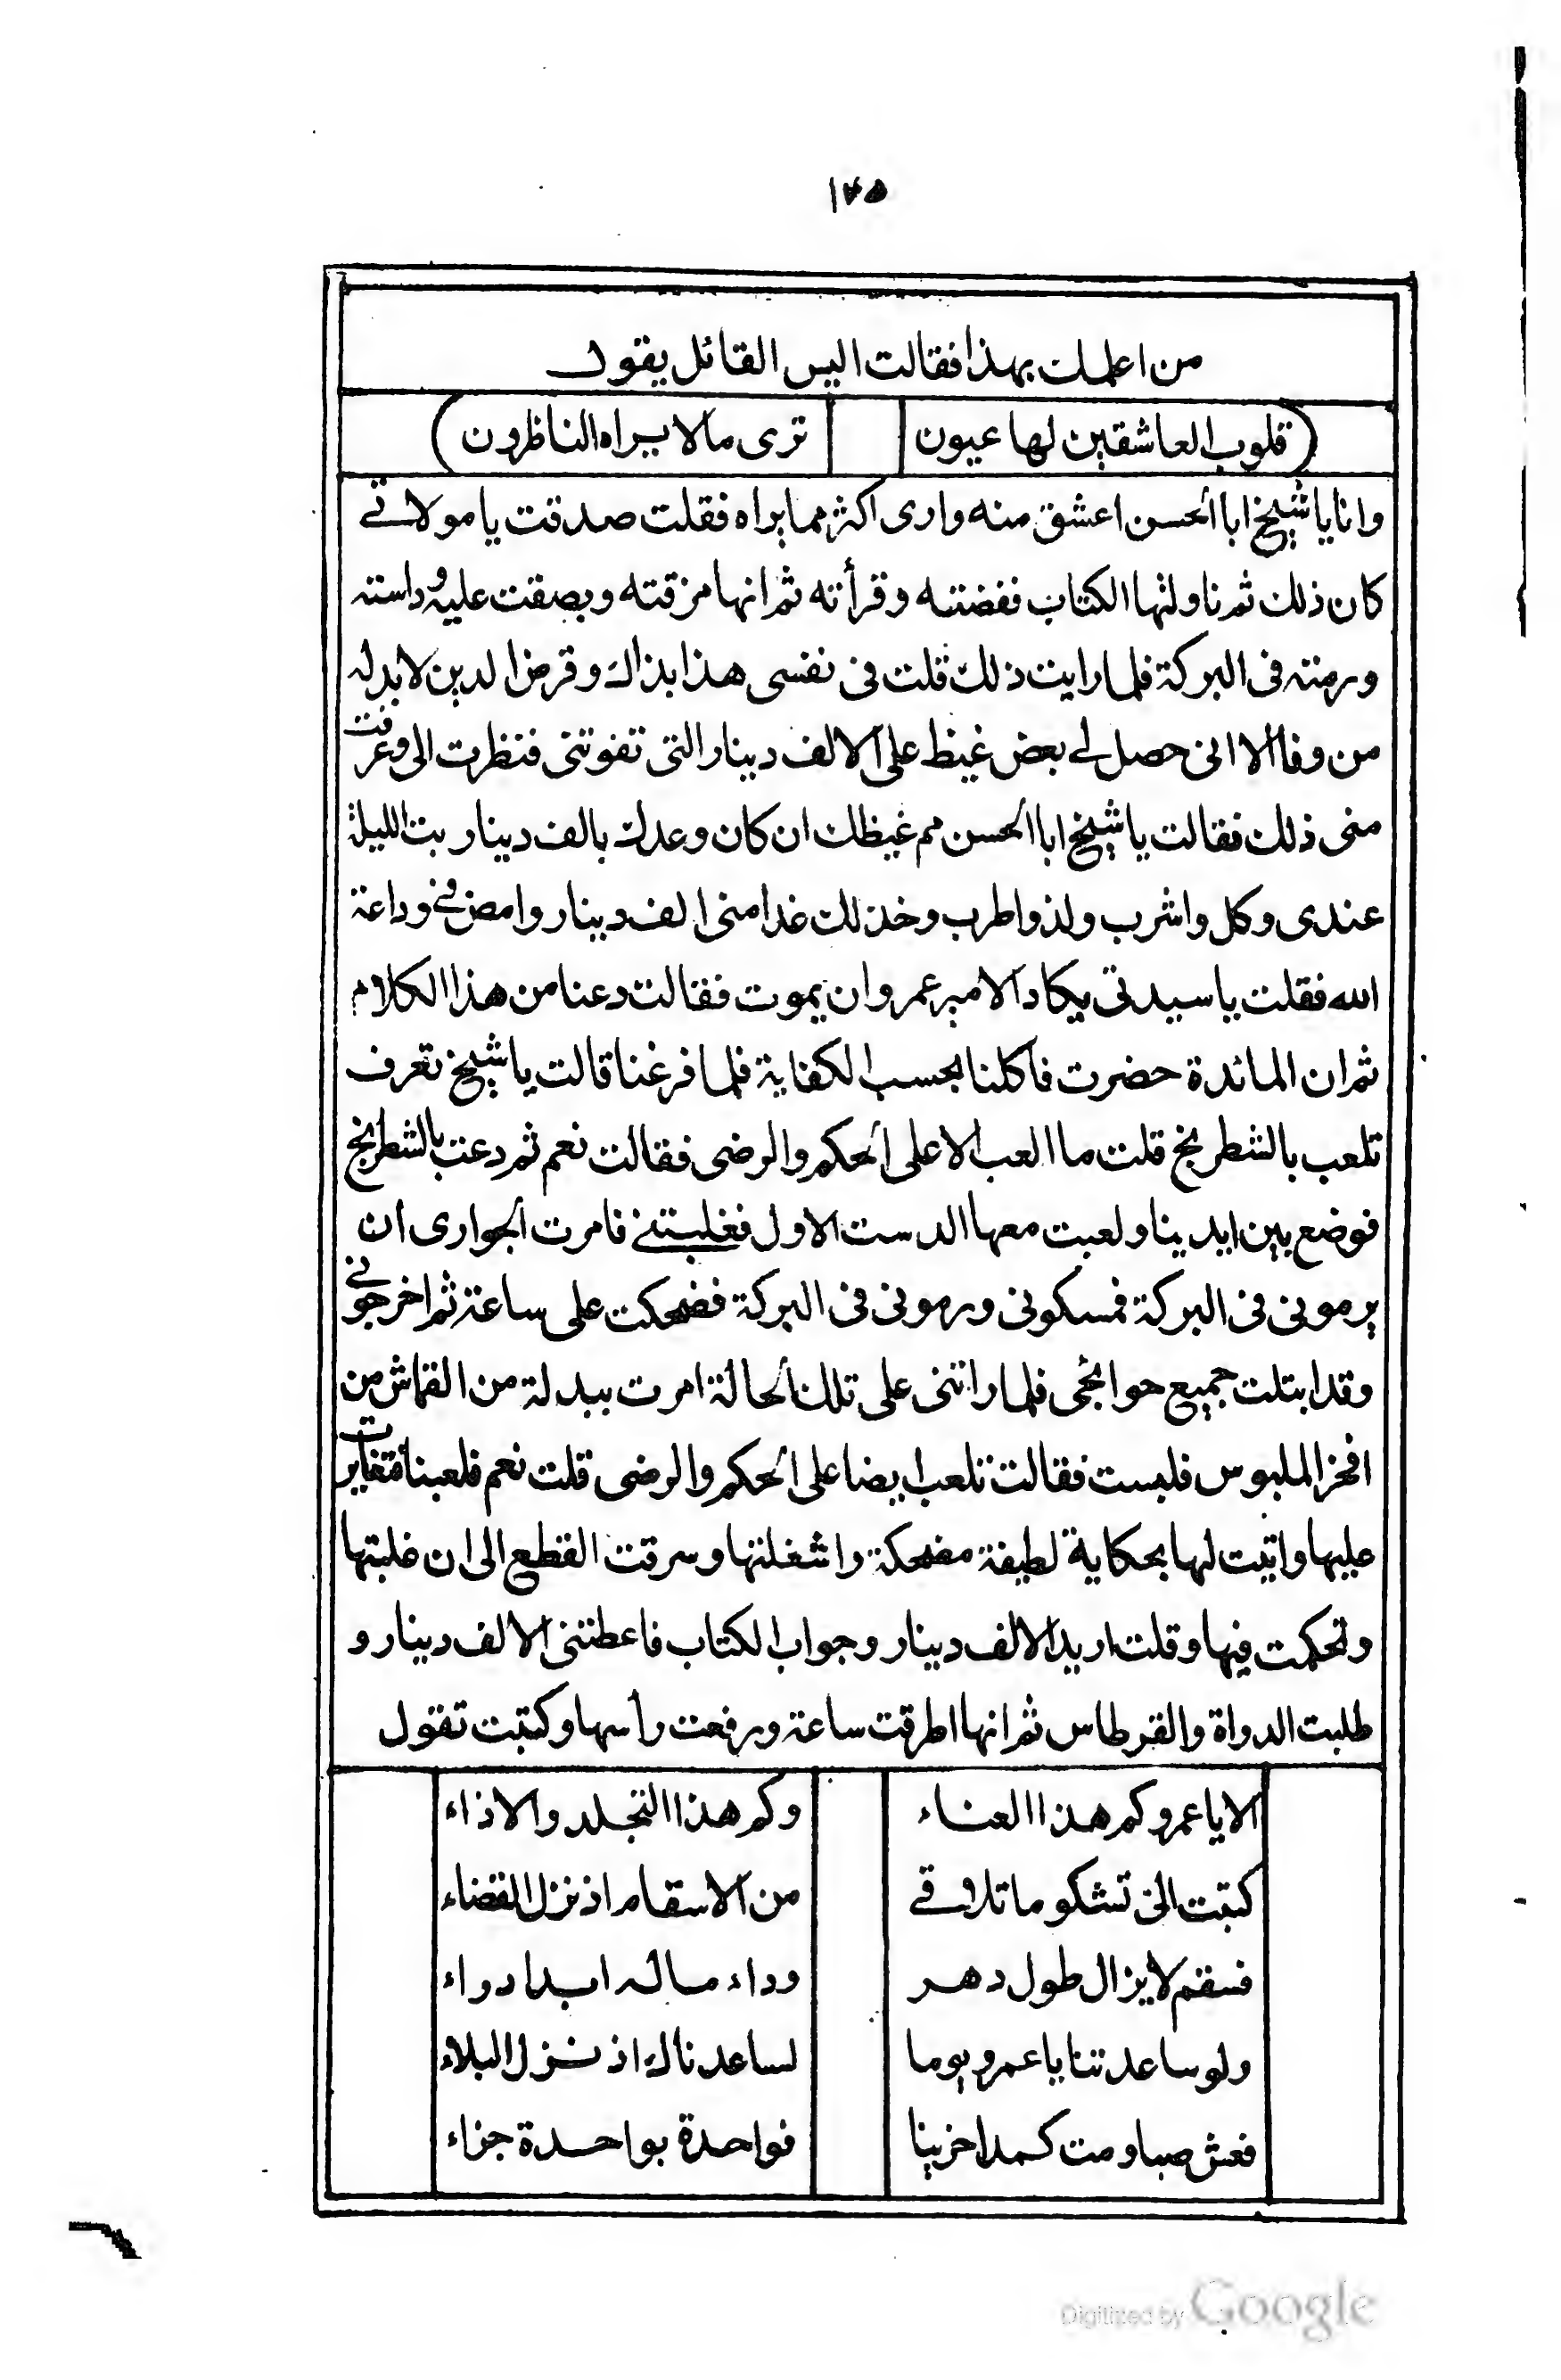 ١٧٥
من اعلمك بهذا فقالت اليس القائل يقول
(قلوب العاشقين لها عيون ترى مالا يراه الناظرون)
وانا يا شيخ ابا الحسن اعشق منه وارى اكثر مما يراه فقلت صدقت يا مولاتي
كان ذلك ثم ناولتها الكتاب ففضته وقرأته ثم انها مزقته وبصقت عليه وداسته
ورمته فى البركة فلما رايت ذلك قلت فى نفسى هذا بذاك وقرض الدين لا بد له
من وفا الا انى حصل لي بعض غيظ على الالف دينار التى تفوتنى فنظرت الى وعرفت
منى ذلك فقالت يا شيخ ابا الحسن مم غيظك ان كان وعدك بالف دينار بت الليلة
عندى وكل واشرب ولذ واطرب وخذ لك غدا منى الف دينار وامض في وداعة
الله فقلت يا سيدتى يكاد الامير عمرو ان يموت فقالت دعنا من هذا الكلام
ثم ان المائدة حضرت فاكلنا بحسب الكفاية فلما فرغنا قالت يا شيخ تعرف
تلعب بالشطرنج قلت ما العب الا على الحكم والرضى فقالت نعم ثم دعت بالشطرنج
فوضع بين ايدينا ولعبت معها الدست الاول فغلبتني فامرت الجوارى ان
يرمونى فى البركة فمسكونى ورمونى فى البركة فضحكت على ساعة ثم اخرجوني
وقد ابتلت جميع حوائجى فلما راتنى على تلك الحالة امرت ببدلة من القماش من
افخر الملبوس فلبست فقالت تلعب ايضا على الحكم والرضى قلت نعم فلعبنا فتغايرت
عليها واتيت لها بحكاية لطيفة مضحكة واشغلتها وسرقت القطع الى ان غلبتها
وتحكمت فيها وقلت اريد الالف دينار وجواب الكتاب فاعطتنى الالف دينار و
طلبت الدواة والقرطاس ثم انها اطرقت ساعة ورفعت رأسها وكتبت تقول
الا يا عمرو كم هذا العناء وكم هذا التجلد والاذاء
كتبت الى تشكو ما تلاقي من الاسقام اذ نزل القضاء
فسقم لا يزال طول دهر وداء ماله ابدا دواء
ولو ساعدتنا يا عمرو يوما لساعدناك اذ نزل البلاء
فعش صبا ومت كمدا حزينا فواحدة بواحدة جزاء
Digitized by Google